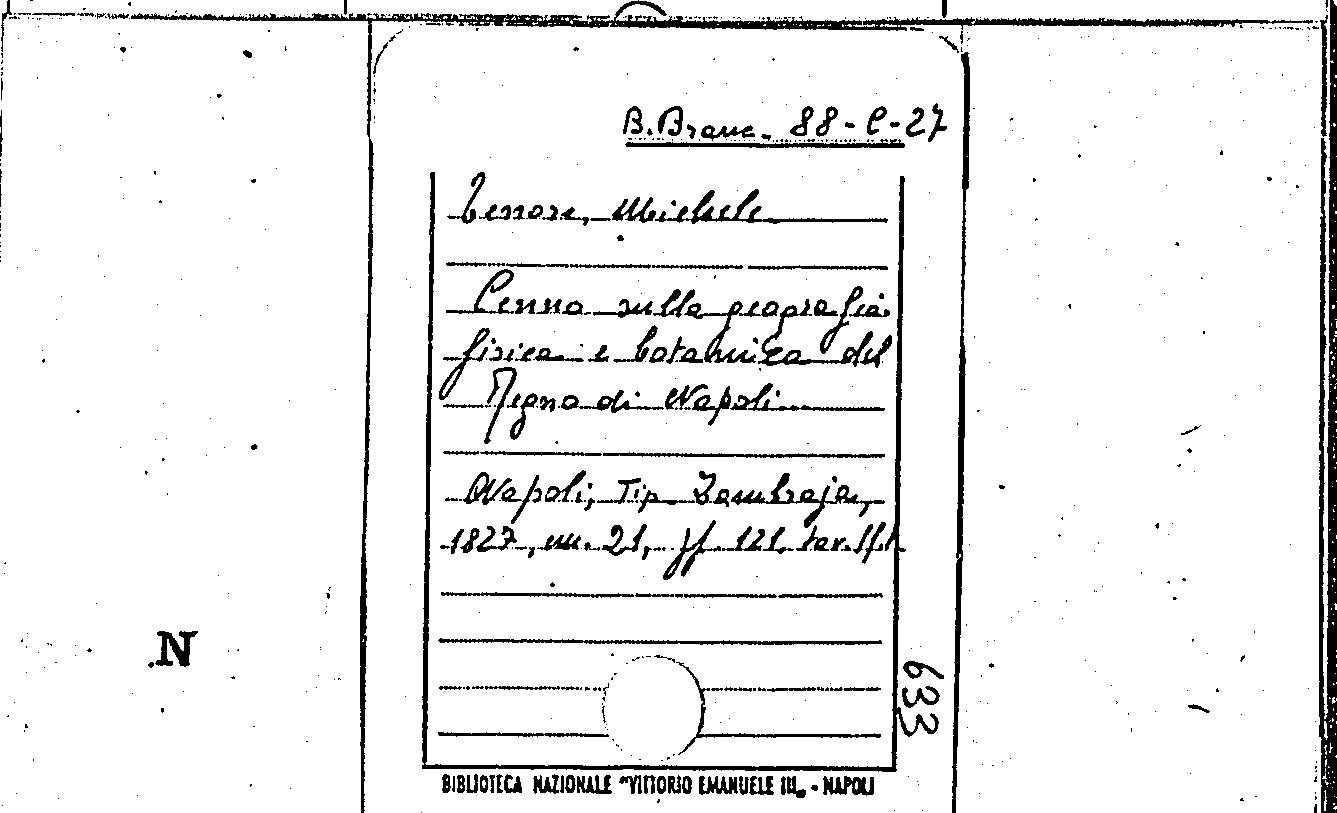 B. Branc. 88-C-27
Tenore, Michele
Cenno sulla geografia
fisica e botanica del
Regno di Napoli
Napoli, Tip. Zambraja,
1827, mm. 21, pp. 121, tav. 1 f.t.
633
N
BIBLIOTECA NAZIONALE "VITTORIO EMANUELE III„ - NAPOLI